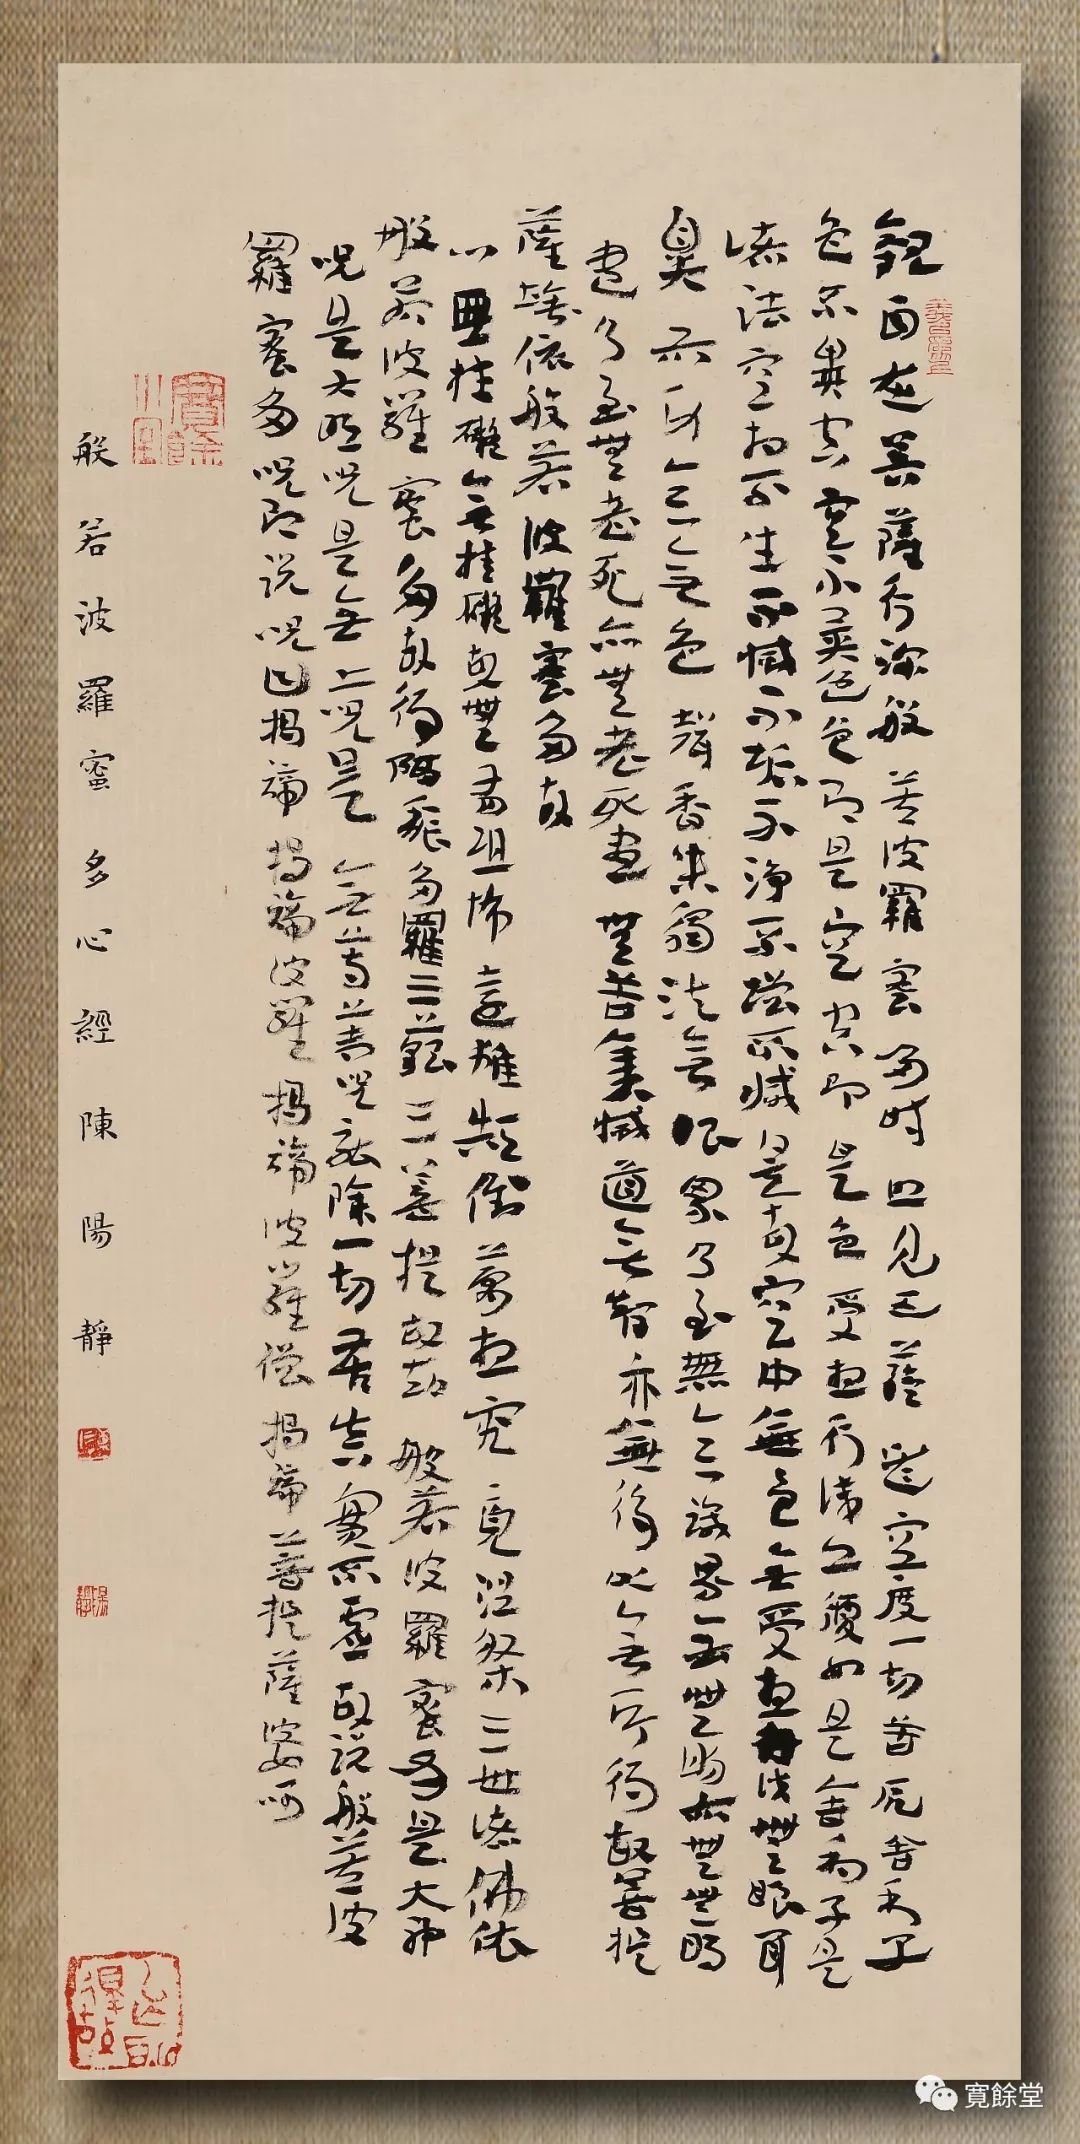 觀自在菩薩行深般若波羅蜜多時照見五蘊皆空度一切苦厄舍利子
色不異空空不異色色即是空空即是色受想行識亦復如是舍利子是
諸法空相不生不滅不垢不淨不增不減是故空中無色無受想行識無眼耳
鼻舌身意無色聲香味觸法無眼界乃至無意識界無無明亦無無明
盡乃至無老死亦無老死盡無苦集滅道無智亦無得以無所得故菩提
薩埵依般若波羅蜜多故
心無挂礙無挂礙故無有恐怖遠離顛倒夢想究竟涅槃三世諸佛依
般若波羅蜜多故得阿耨多羅三藐三菩提故知般若波羅蜜多是大神
咒是大明咒是無上咒是無等等咒能除一切苦真實不虛故說般若波
羅蜜多咒即說咒曰揭諦揭諦波羅揭諦波羅僧揭諦菩提薩婆呵
般若波羅蜜多心經陳陽靜
寬餘堂